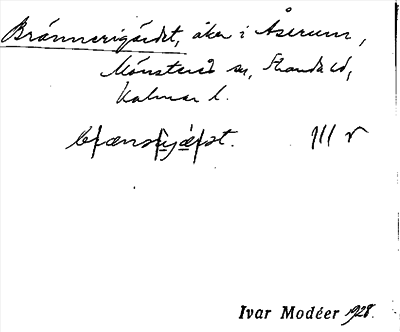 Brännerigärdet, åker i Åserum,
Mönsterås sn, Stranda hd,
Kalmar l.
III r
Ivar Modéer 1928.